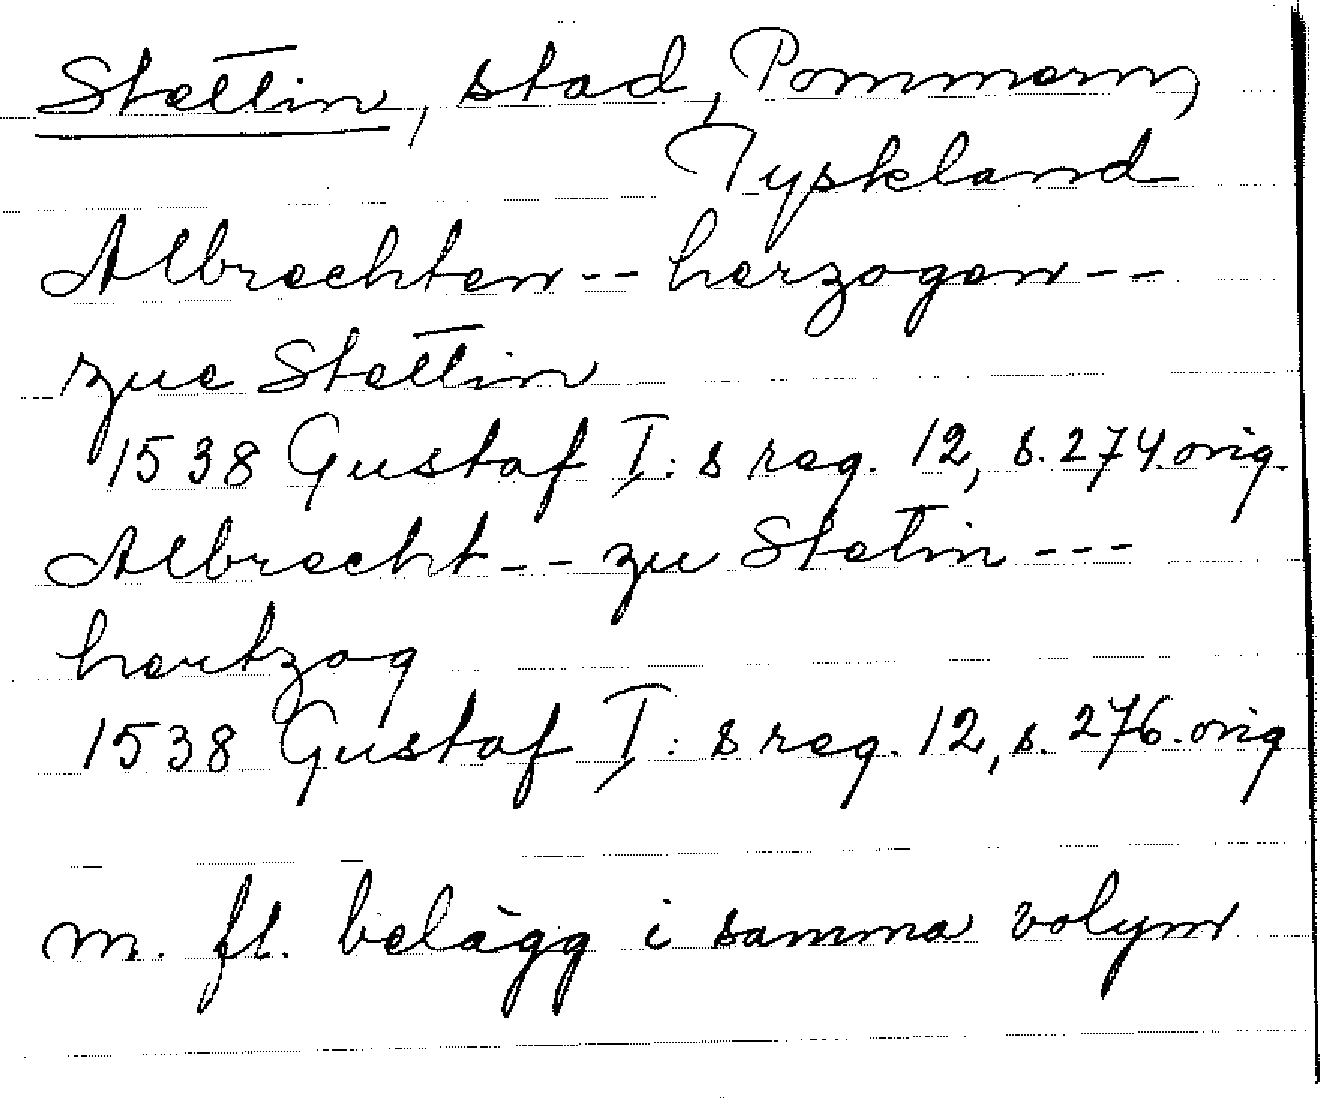 Stettin, stad, Pommern,
Tyskland
Albrechten -- herzogen --
zue Stettin
1538 Gustaf I:s reg. 12, s. 274. orig.
Albrecht -- zu Stetin ---
hertzog
1538 Gustaf I:s reg. 12, s. 276. orig
m. fl. belägg i samma volym